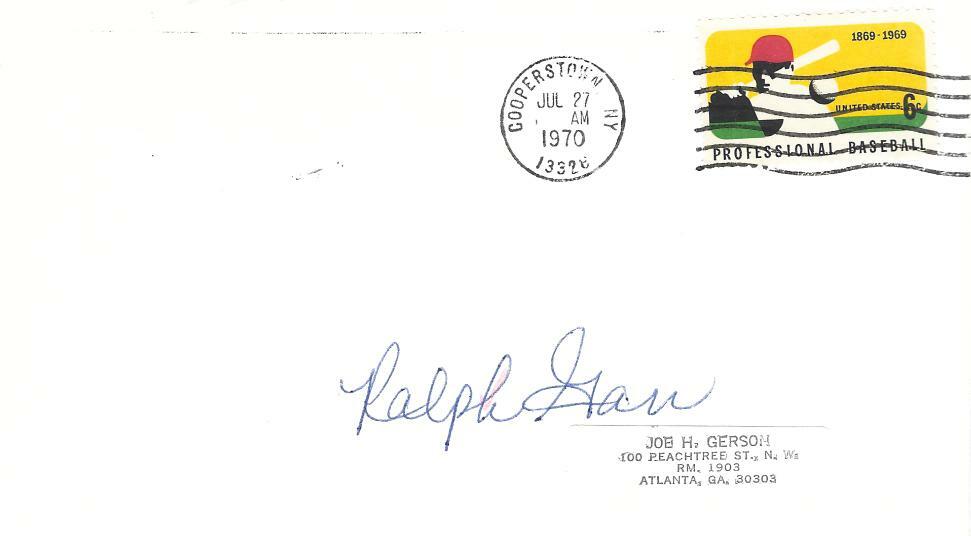 COOPERSTOWN NY
JUL 27
AM
1970
13326
1869-1969
UNITED STATES 6c
PROFESSIONAL BASEBALL
Ralph Garr
JOE H. GERSON
100 PEACHTREE ST., N. W.
RM. 1903
ATLANTA, GA. 30303